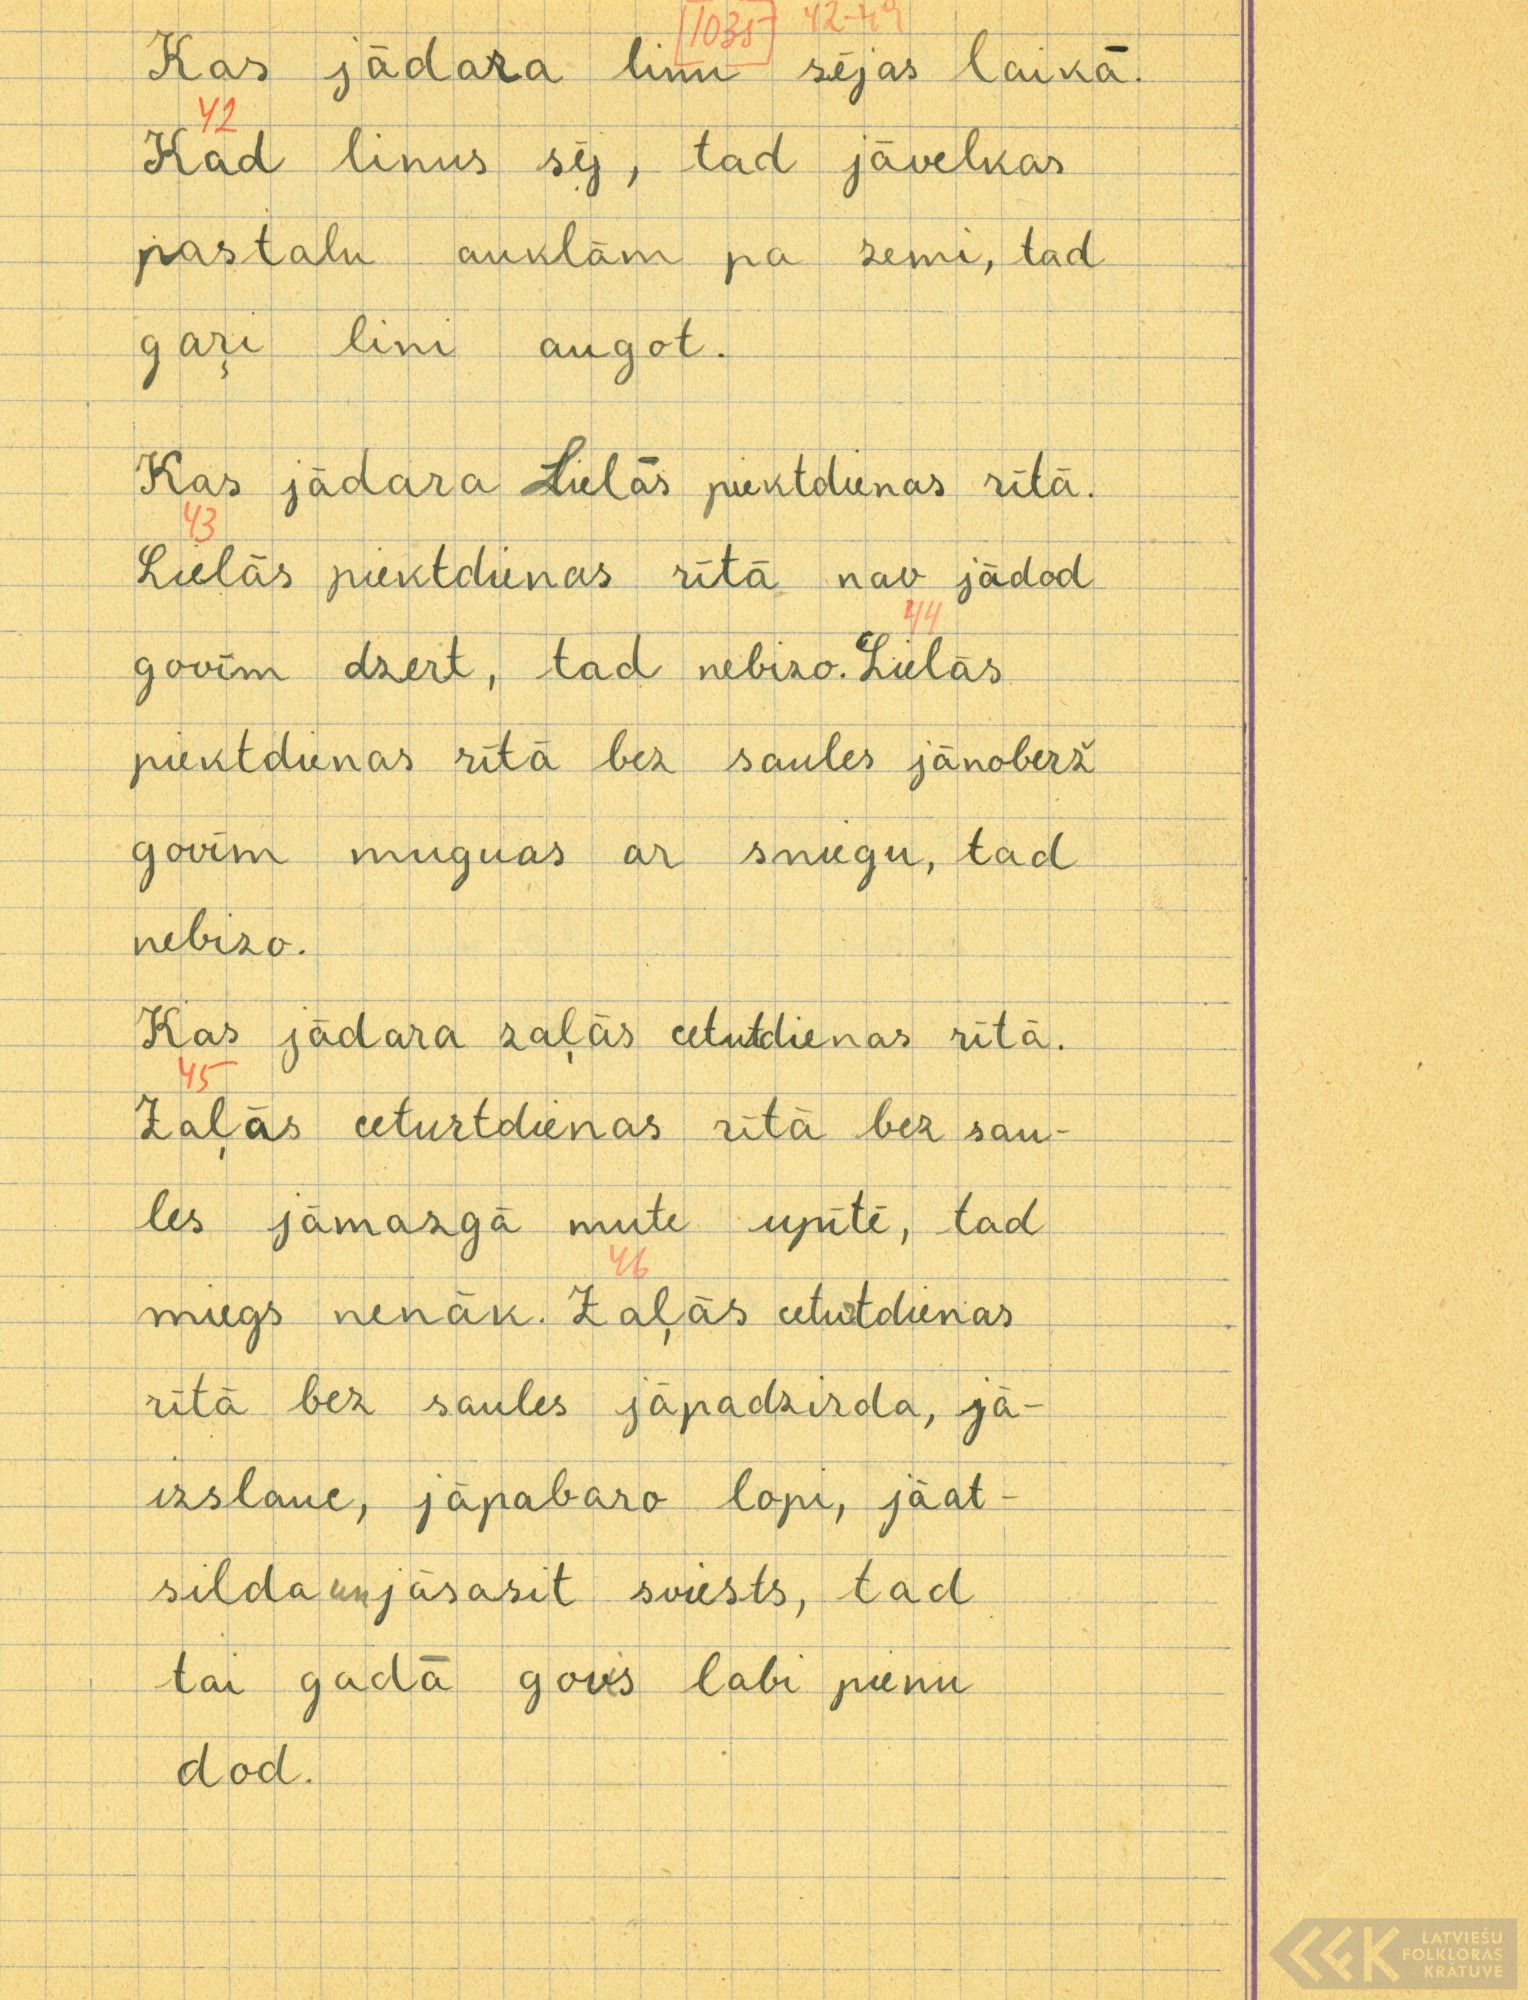 1035 42-49
Kas jādara linu sējas laikā.
42
Kad linus sēj, tad jāvelkas
pastalu auklām pa zemi, tad
gaŗi lini augot.
Kas jādara Lielās piektdienas rītā.
43
Lielās piektdienas rītā nav jādod
44
govīm dzert, tad nebizo. Lielās
piektdienas rītā bez saules jānoberž
govīm muguas ar sniegu, tad
nebizo.
Kas jādara zaļās cetutdienas rītā.
45
Zaļās ceturtdienas rītā bez sau-
les jāmazgā mute upītē, tad
46
miegs nenāk. Zaļās ceturtdienas
rītā bez saules jāpadzirda, jā-
izslauc, jāpabaro lopi, jāat-
silda un jāsasit sviests, tad
tai gadā govis labi pienu
dod.
LATVIEŠU
FOLKLORAS
KRĀTUVE